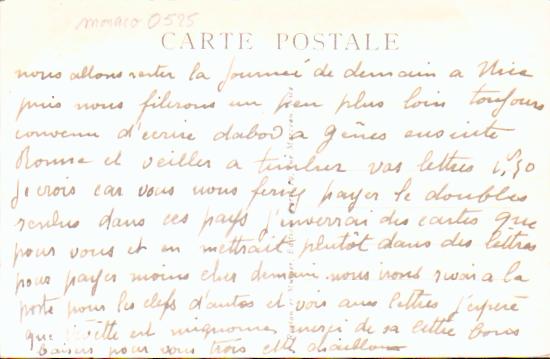 monaco 0525
CARTE POSTALE
nous allons rester la journeé de demain a Nice
puis nous filerons un peu plus loin toujours
convenu d'ecrire dabord a Gênes ensuite
Rome et veiller a timbrer vos lettres 1,50
je crois car vous nous ferez payer le doubles
rendus dans ces pays j'inverrai des cartes que
pour vous et en mettrait plutôt dans des lêttres
pour payer moins cher demain nous irons a la
poste pour les clefs d'autos et voir aux lettres j'éspére
que est mignonne merci de sa lettre bons
baisers pour vous trois